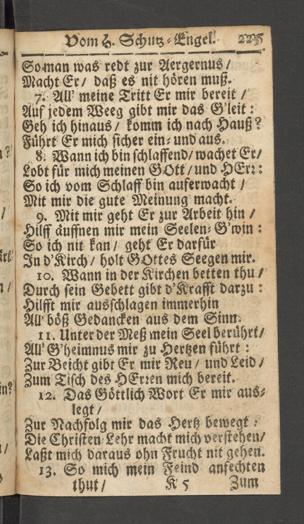 Vom H. Schutz-Engel. 225
So man was redt zur Aergernus /
Macht Er / daß es nit hören muß.
7. All' meine Tritt Er mir bereit /
Auf jedem Weeg gibt mir das G'leit:
Geh ich hinaus / komm ich nach Hauß?
Führt Er mich sicher ein- und aus.
8. Wann ich bin schlaffend / wachet Er /
Lobt für mich meinen GOtt / und HErr:
So ich vom Schlaff bin auferwacht /
Mit mir die gute Meinung macht.
9. Mit mir geht Er zur Arbeit hin /
Hilff äuffnen mir mein Seelen-G'win:
So ich nit kan / geht Er darfür
In d'Kirch / holt GOttes Seegen mir.
10. Wann in der Kirchen betten thu /
Durch sein Gebett gibt d'Krafft darzu:
Hilfft mir ausschlagen immerhin
All' böß Gedancken aus dem Sinn.
11. Unter der Meß mein Seel berührt /
All' G'heimnus mir zu Hertzen führt:
Zur Beicht gibt Er mir Reu / und Leid /
Zum Tisch des HErren mich bereit.
12. Das Göttlich Wort Er mir aus-
legt /
Zur Nachfolg mir das Hertz bewegt:
Die Christen-Lehr macht mich verstehen /
Laßt mich daraus ohn Frucht nit gehen.
13. So mich mein Feind anfechten
thut / K 5 Zum